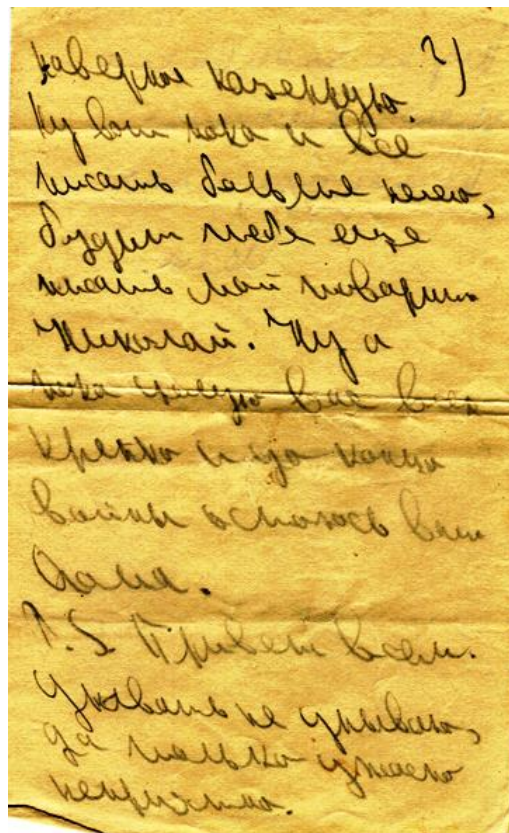 2)
наверное казенную.
Ну вот пока и все
писать больше нечего,
будет тебе еще
писать мой товарищ
Николай. Ну а
пока целую вас всех
крепко и до конца
войны остаюсь ваш
P.S. Привет всем.
Унывать не унываю,
да только ужасно
неприятно.